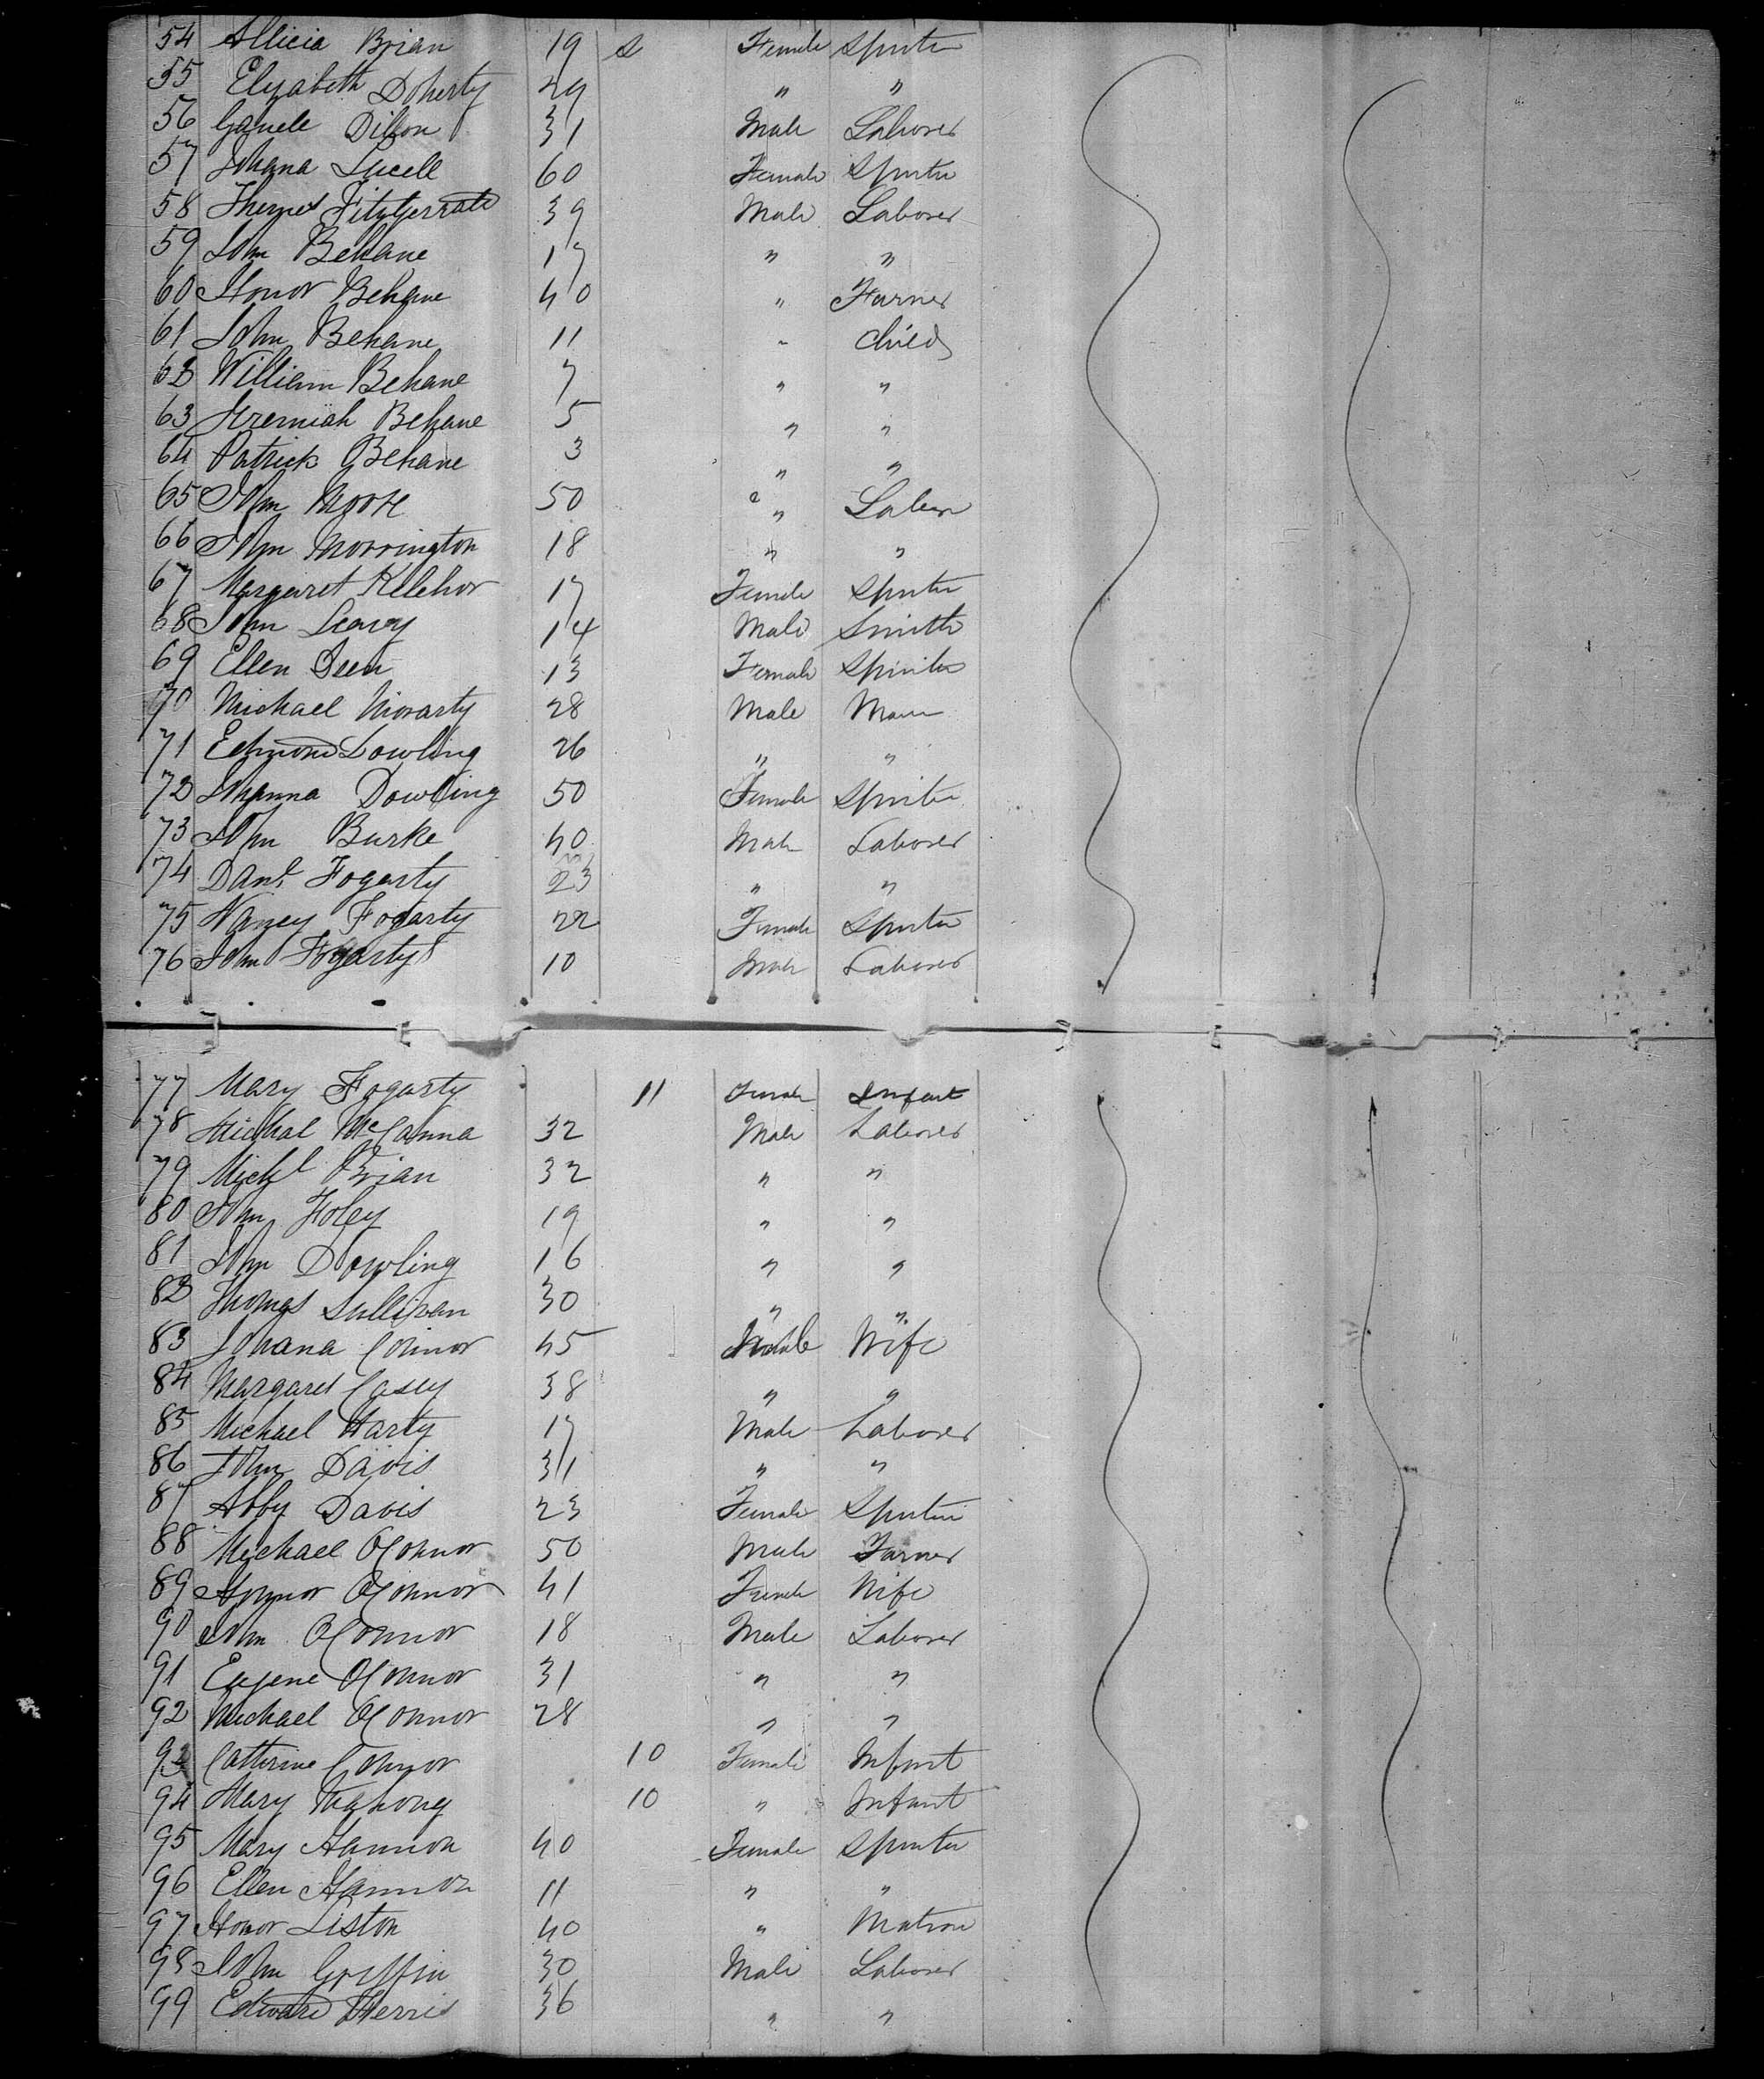 54 Allicia Brian 19 s Female Spinster
55 Elizabeth Doherty 29 " "
56 Dillon 31 Male Laborer
57 Johana Lucell 60 Female Spinster
58 Thomas Fitzgerrald 39 Male Laborer
59 John Behane 17 " "
60 Honor Behane 40 " Farmer
61 John Behane 11 " Child
62 William Behane 7 " "
63 Jeremiah Behane 5 " "
64 Patrick Behane 3 " "
65 John Moore 50 " Laborer
66 John Morrington 18 " "
67 Margaret Kelehor 17 Female Spinster
68 John Leary 14 Male Smith
69 Ellen 13 Female Spinster
70 Michael Morarty 28 Male
71 Edmond Dowling 26 " "
72 Johanna Dowling 50 Female Spinster
73 John Burke 40 Male Laborer
74 Danl. Fogarty 23 " "
75 Nancy Fogarty 22 Female Spinster
76 John Fogarty 10 Male Laborer
77 Mary Fogarty 11 Female Infant
78 Michal McCanna 32 Male Laborer
79 Michl Brian 32 " "
80 John Foley 19 " "
81 John Dowling 16 " "
82 Thomas Sullivan 30 " "
83 Johana Connor 45 Wife
84 Margaret Casey 38 " "
85 Michael Harty 17 Male Laborer
86 John Davis 31 " "
87 Abby Davis 23 Female Spinster
88 Michael OConnor 50 Male Farmer
89 Honnor OConnor 41 Female Wife
90 John OConnor 18 Male Laborer
91 Eugene OConnor 31 " "
92 Michael OConnor 28 " "
93 Catherine Connor 10 Female Infant
94 Mary Mahony 10 " Infant
95 Mary Hannon 40 Female Spinster
96 Ellen Hannon 11 " "
97 Honor Liston 40 " Matron
98 John Griffin 30 Male Laborer
99 Edward Herris 36 " "